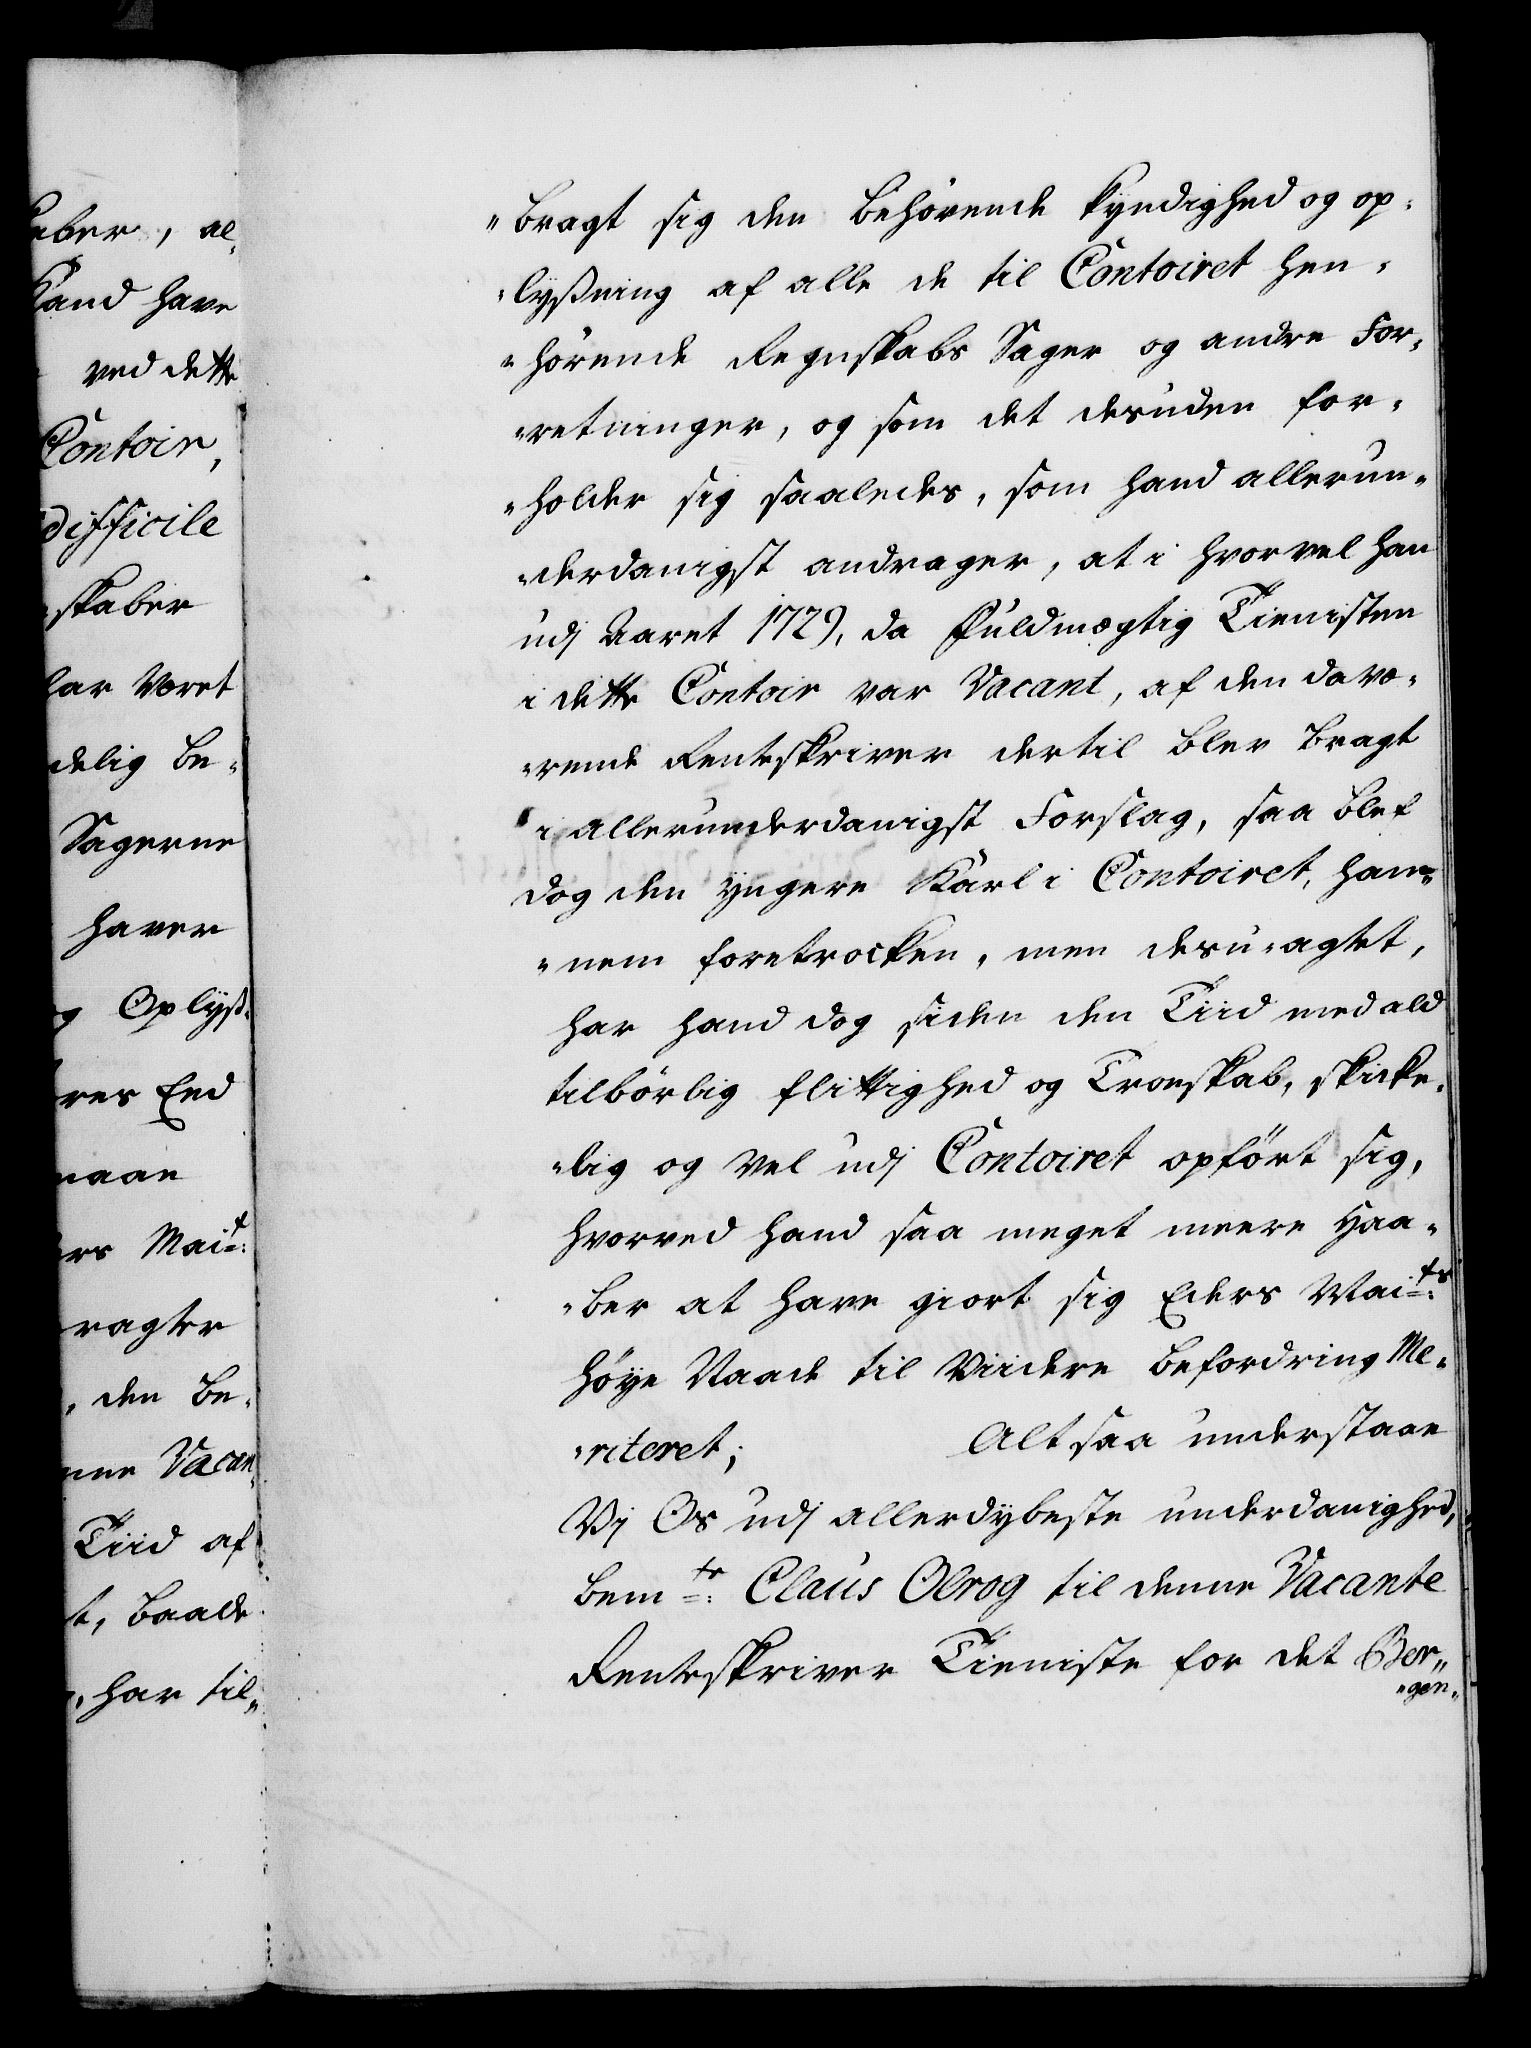 aber, al-
Kand have
ved dette
Contoir,
difficile
skaber
har Været
delig be-
Sagerne
haver
og Oplyß-
res Eed
maan
ers Mait:
ragter
, den be-
nne Vacan-
Tiid af
t, baade
, har til-
"bragt sig den behørende kyndighed og op-
"lyßning af alle de til Contoiret hen-
"hørende Regnskabs Sager og andre For-
"retninger, og som det desuden for-
"holder sig saaledes, som hand allerun-
"derdanigst andrager, at i hvorvel han
udj Aaret 1729, da Fuldmægtig Tienisten
i dette Contoir var Vacant, af den davæ-
"rende Rentskriver dertil blev bragt
i allerunderdanigst Forslag, saa blef
dog den yngere Karl i Contoiret, ham-
"nem foretrocken, men desu-agtet,
har hand dog siden den Tiid med ald
tilbørlig flittighed og Troeskab, skicke-
"lig og vel udj Contoiret opført sig,
hvorved hand saa meget meere Haa-
"ber at have giort sig Eders Maits:
høye Naade til Viidere befordring Me-
"riteret; Alt saa understaae
Vj Os udj allerdybeste underdanighed,
bemte: Claus Olrog til denne Vacante
Rentskriver Tieniste for det Ber"
"gen-